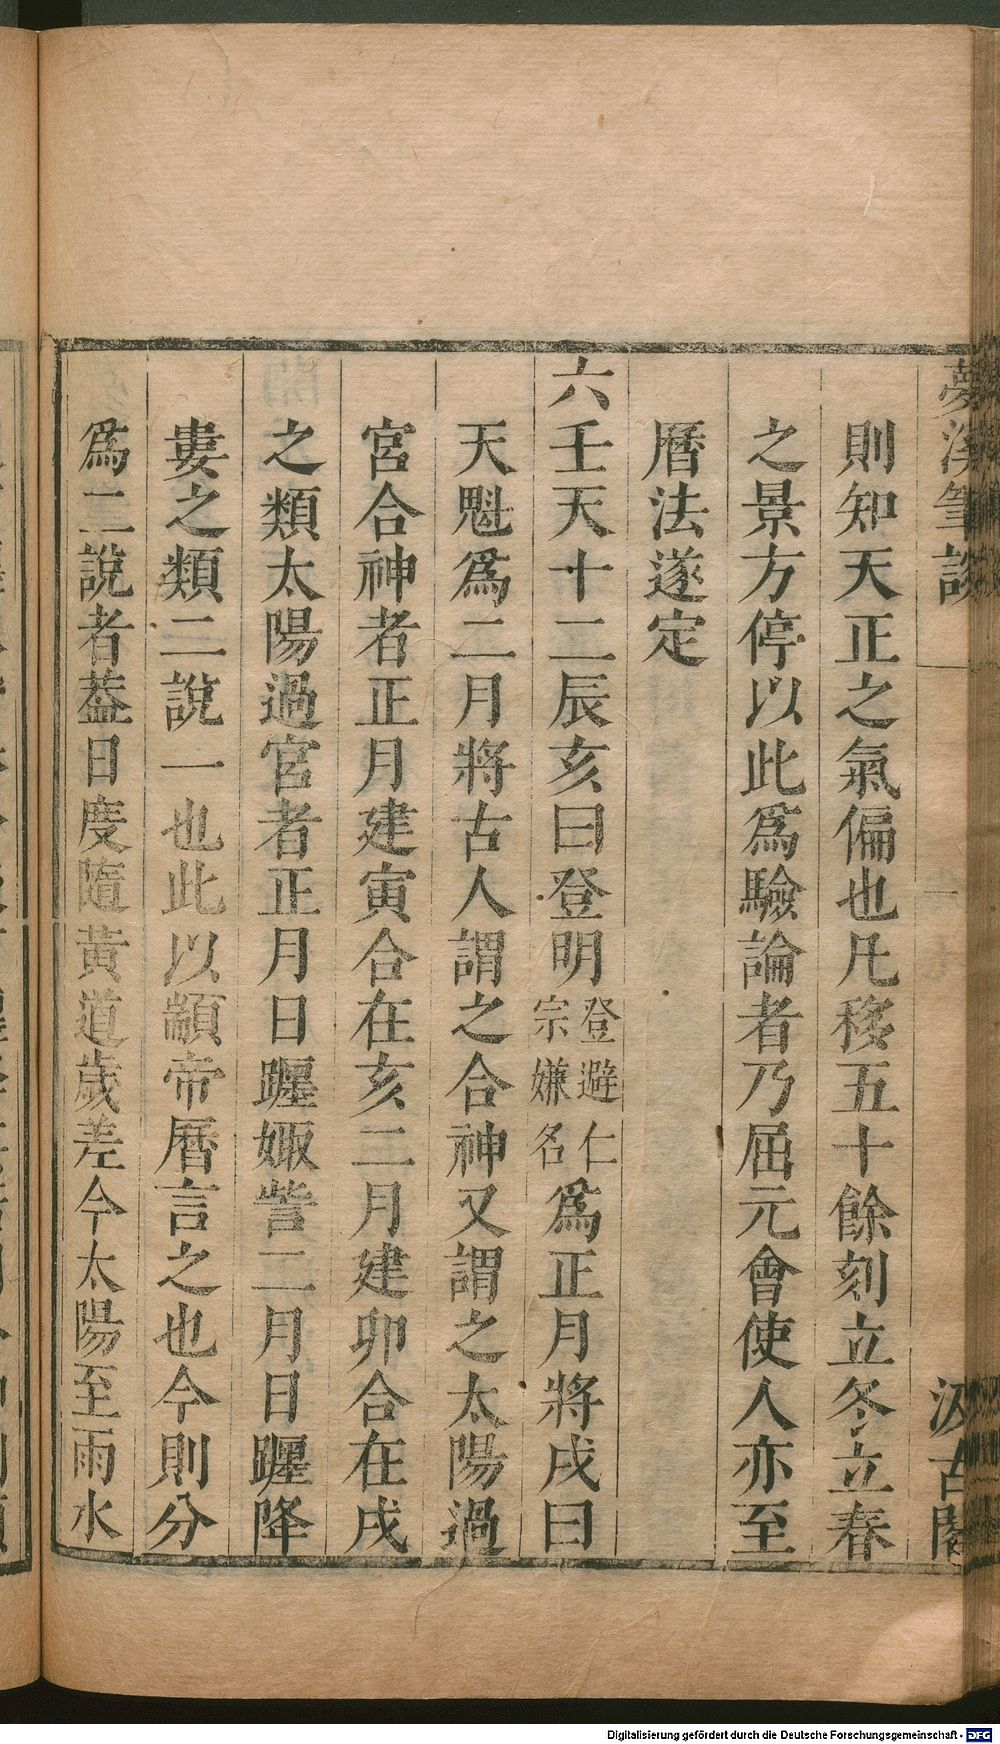 夢溪筆談
汲古閣
則知天正之氣偏也凡移五十餘刻立冬立春
之景方停以此爲驗論者乃屈元會使人亦至
曆法遂定
六壬天十二辰亥曰登明登避仁宗嫌名爲正月將戌曰
天魁爲二月將古人謂之合神又謂之太陽過
宮合神者正月建寅合在亥二月建卯合在戌
之類太陽過宮者正月日躔娵訾二月日躔降
婁之類二說一也此以顓帝曆言之也今則分
爲二說者葢日度隨黃道歲差今太陽至雨水
Digitalisierung gefördert durch die Deutsche Forschungsgemeinschaft - DFG